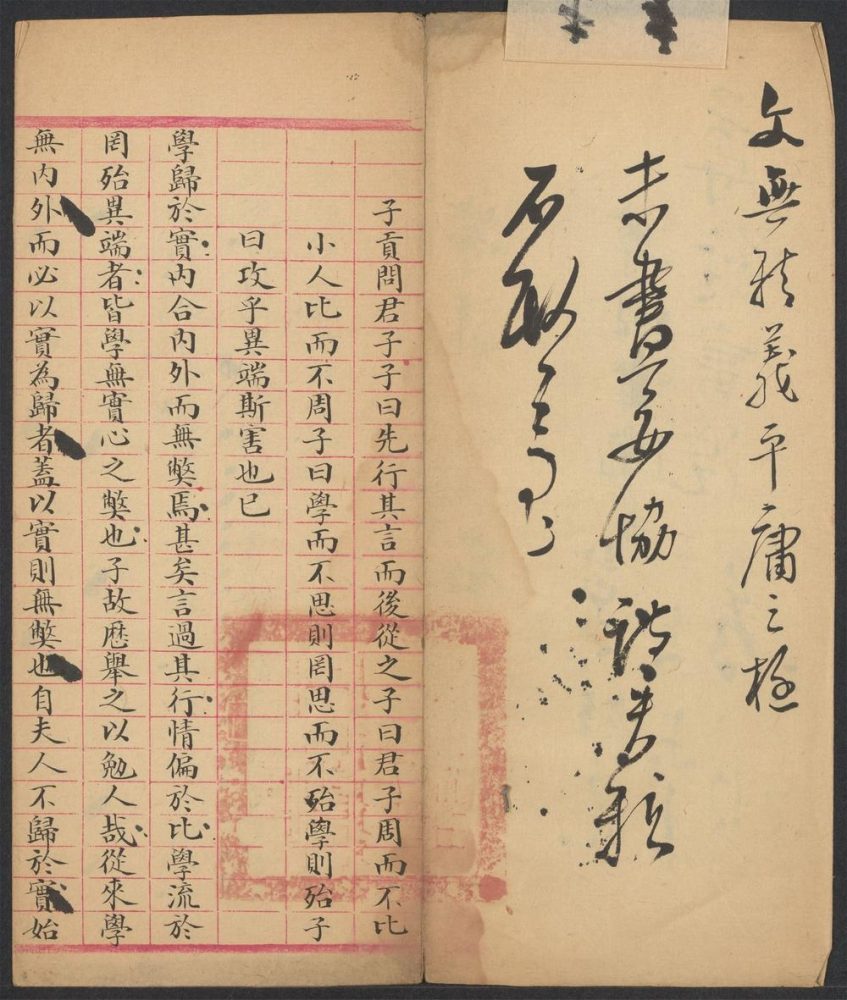 文無精義平庸之極
書妥協
子貢問君子子曰先行其言而後從之子曰君子周而不比
小人比而不周子曰學而不思則罔思而不殆學則殆子
曰攻乎異端斯害也已
學歸於實內合內外而無獘焉甚矣言過其行情偏於比學流於
罔殆異端者皆學無實心之獘也子故歷舉之以勉人哉從來學
無內外而必以實為歸者蓋以實則無獘也自夫人不歸於實始